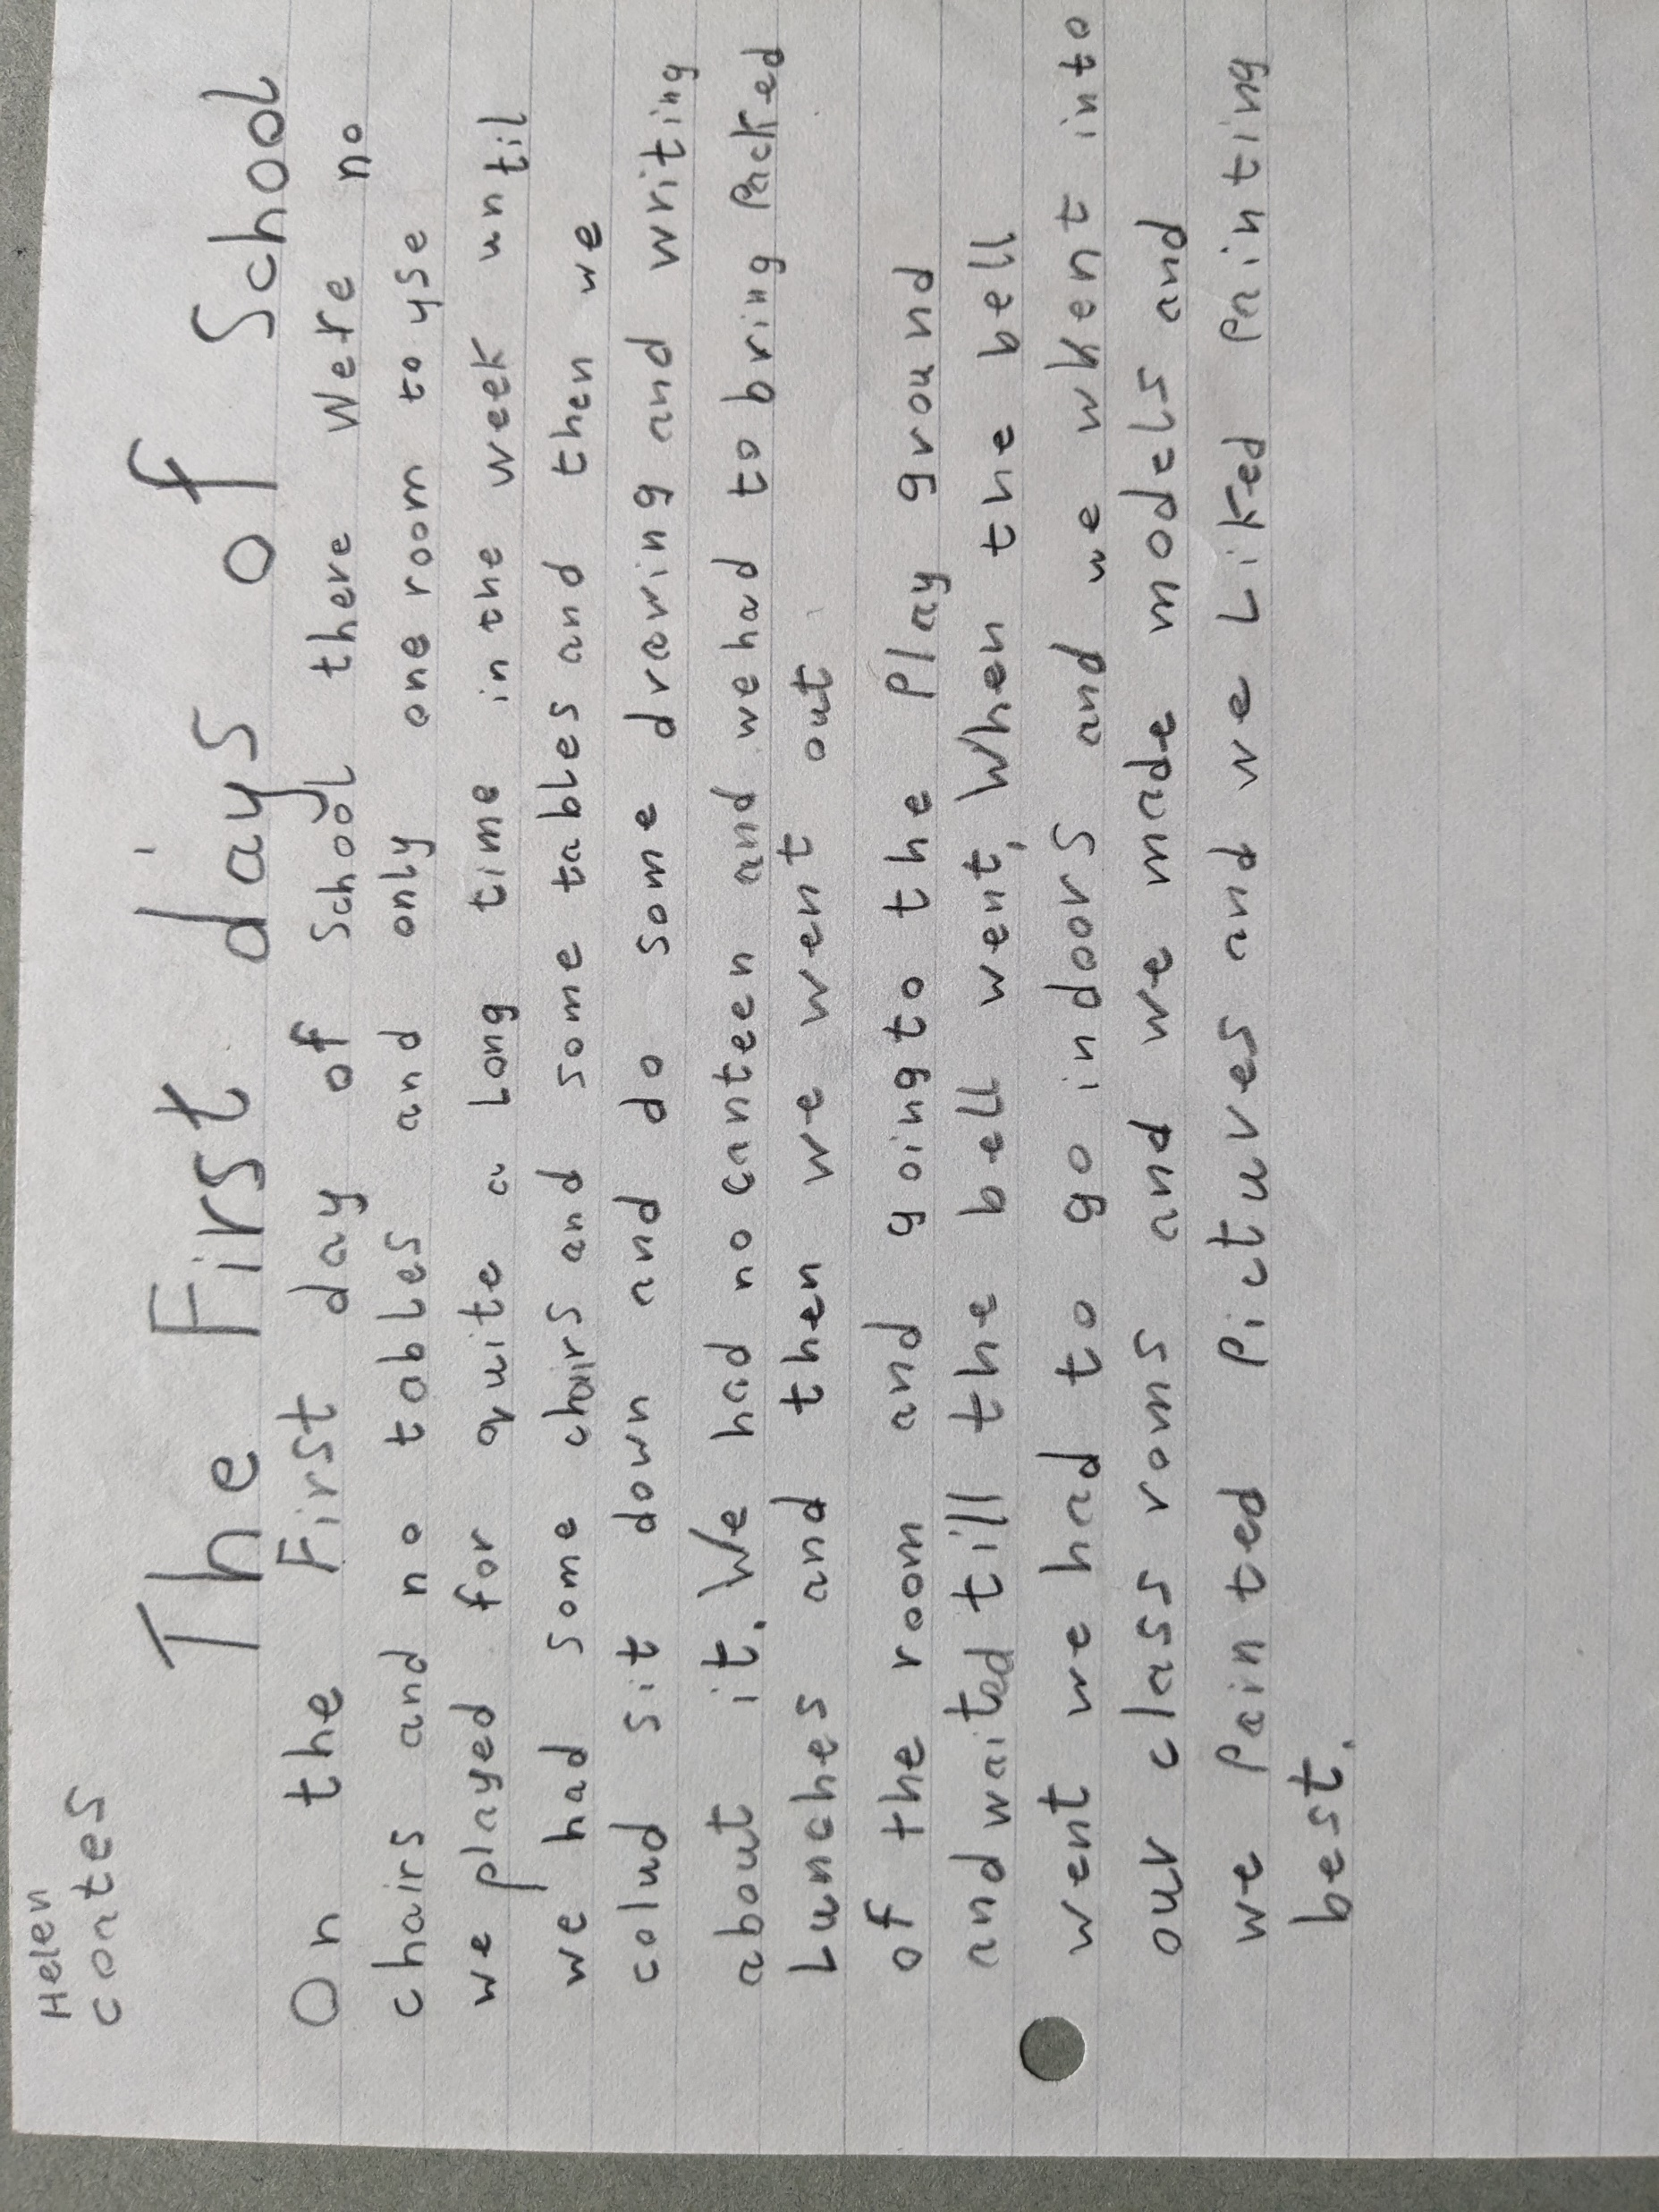 Helen
contes
The First days of School
On the First day of School there were no
chairs and no tables and only one room to yse
we played for quite a Long time in the week until
we had some chairs and some tables and then we
colud sit down and do some drawing and writing
about it. We had no canteen and we had to bring Packed
Lunches and then we went out
of the room and going to the Play ground
and waited till the bell went. When the bell
went we had to go indoors and we wkent into
our class roms and we made models and
we Painted Pictures and we Liked Painting
best.